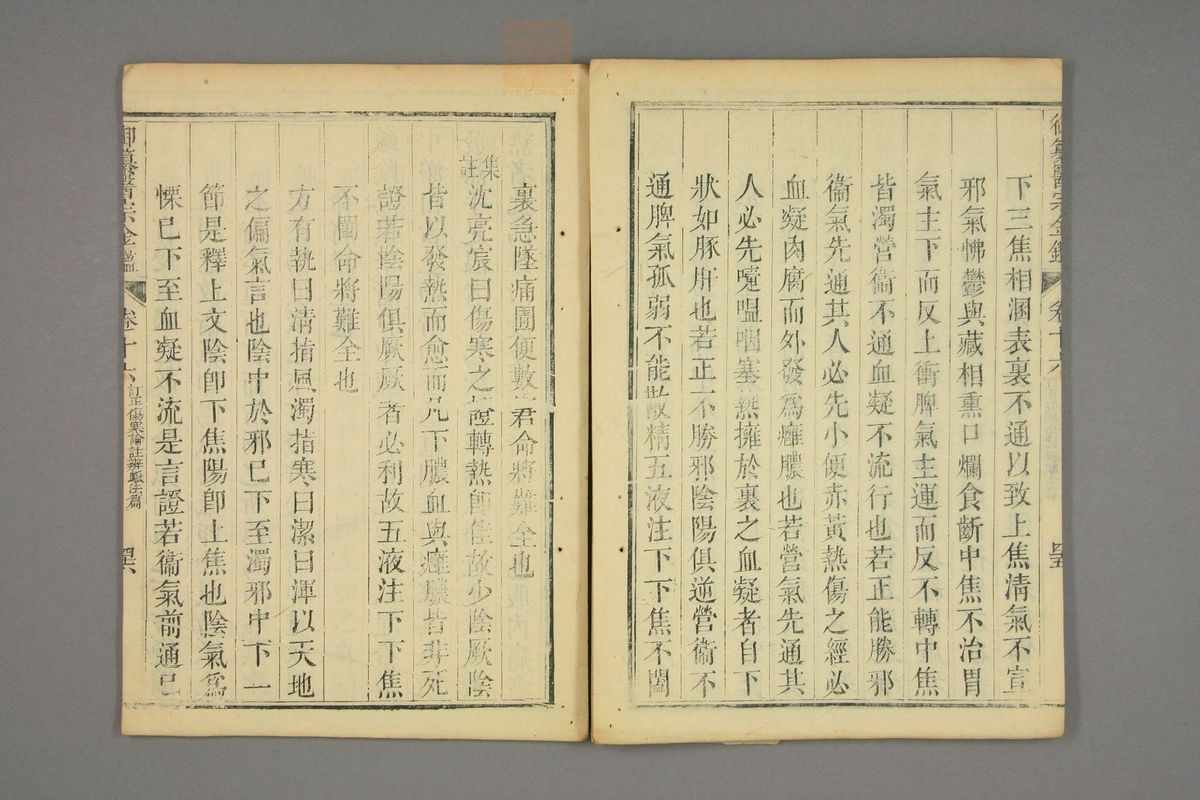 御纂醫宗金鑑 卷十六 四五
下三焦相溷表裏不通以致上焦清氣不宣
邪氣怫鬱與藏相熏口爛食齗中焦不治胃
氣主下而反上衝脾氣主運而反不轉中焦
皆濁營衞不通血凝不流行也若正能勝邪
衞氣先通其人必先小便赤黃熱傷之經必
血凝肉腐而外發為癰膿也若營氣先通其
人必先嚏嗢咽塞熱擁於裏之血凝者自下
狀如豚肝也若正不勝邪陰陽俱逆營衞不
通脾氣孤弱不能散精五液注下下焦不闔
裏急墜痛圊便數 君命將難全也
集註
沈亮宸曰傷寒之證轉熱即佳故少陰厥陰
皆以發熱而愈而凡下膿血與癰膿皆非死
證若陰陽俱厥厥者必利故五液注下下焦
不闔命將難全也
方有執曰清指風濁指寒曰潔曰渾以天地
之偏氣言也陰中於邪已下至濁邪中下一
節是釋上文陰即下焦陽即上焦也陰氣為
慄已下至血凝不流是言證若衞氣前通已
御纂醫宗金鑑 卷十六 訂正傷寒論註辨脈法篇 四六